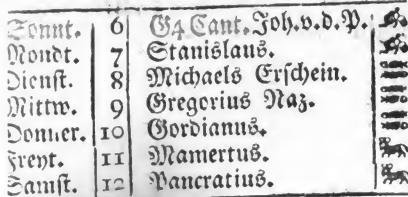 Sonnt. 6 G4 Cant. Joh. v. d. P.
Mondt. 7 Stanislaus.
Dienst. 8 Michaels Erschein.
Mittw. 9 Gregorius Naz.
Donner. 10 Gordianus.
Freyt. 11 Mamertus.
Samst. 12 Pancratius.